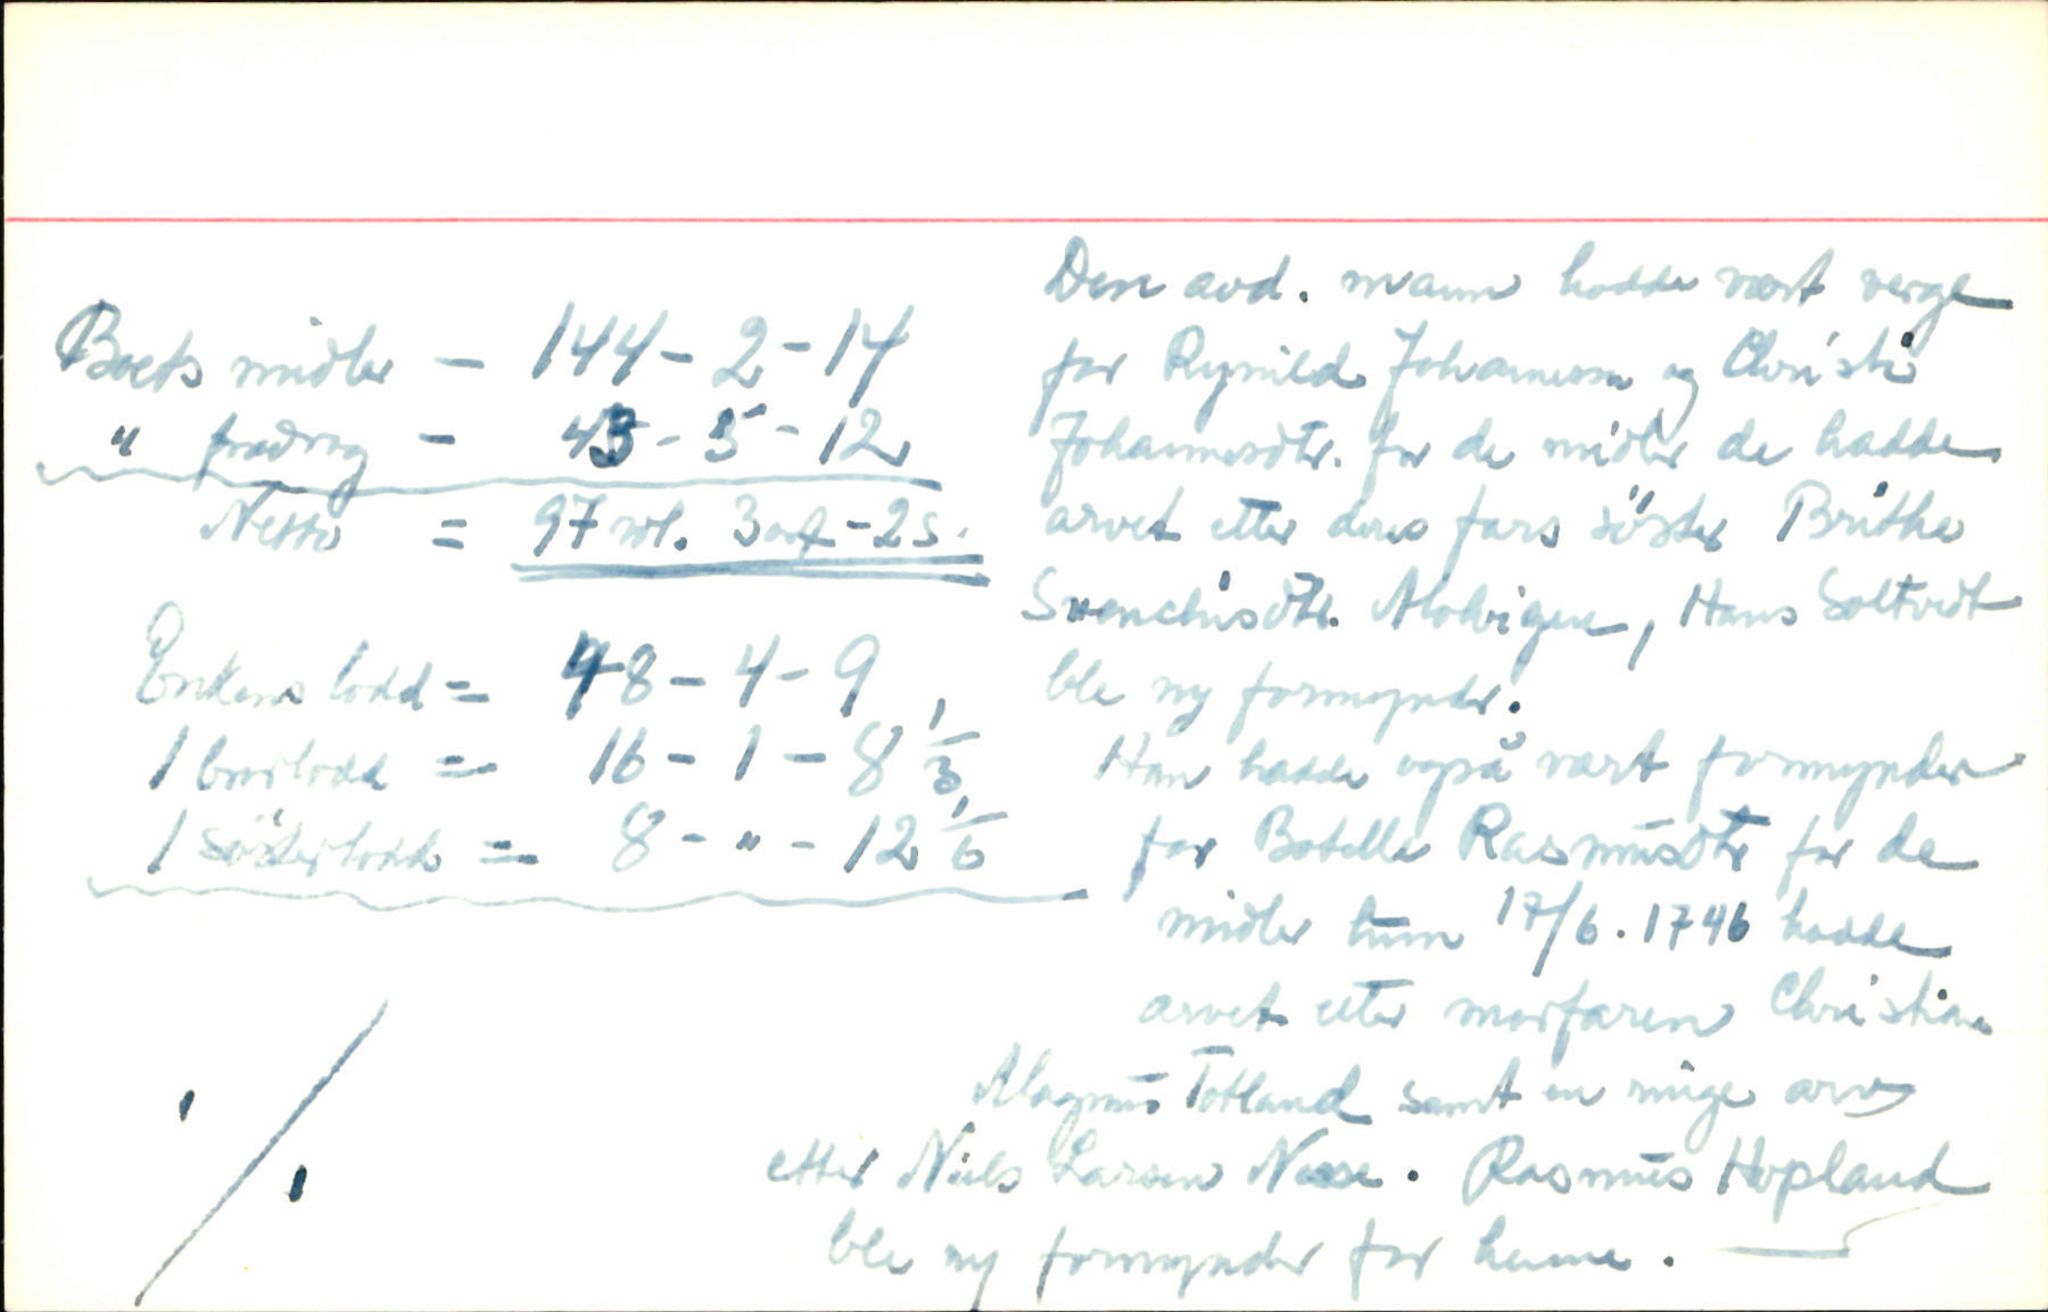 Boets midler - 144 - 2 - 14
" fradrag - 43 - 5 - 12
Netto = 97 rd. 3 ort - 2 s.
Enkens lodd = 48 - 4 - 9
1 brorlodd = 16 - 1 - 8 1/3
1 søsterlodd = 8 - " - 12 1/6
Den avd. mann hadde vært verge
for Rynild Johannesen og Christi
Johannesdtr. for de midler de hadde
arvet etter deres fars søster Brithe
Svenchisdtr. Mohvigen, Hans Soltvedt
ble ny formynder.
Han hadde også vært formynder
for Botelle Rasmusdtr for de
midler hun 17/6. 1746 hadde
arvet etter morfaren Christian
Magnus Totland samt en ringe arv
etter Niels Larsen Nesse. Rasmus Hopland
ble ny formynder for henne.